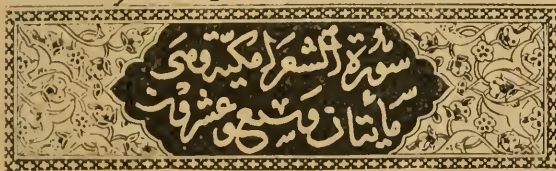 سورة الشعرا مكية وهى
مأيتان وسبع وعشرون